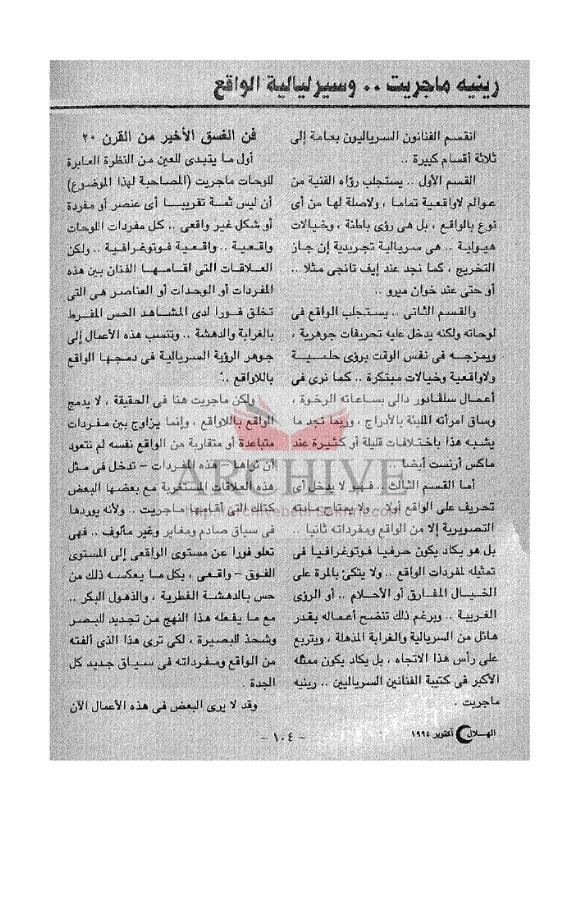 رينيه ماجريت .. وسيرليالية الواقع
انقسم الفنانون السرياليون بعامة إلى
ثلاثة أقسام كبيرة ..
القسم الأول .. يستجلب رؤاه الفنية من
عوالم لاواقعية تماما ، ولاصلة لها من أى
نوع بالواقع ، بل هى رؤى باطنة ، وخيالات
هيولية .. هى سريالية تجريدية إن جاز
التخريج ، كما نجد عند إيف تانجى مثلا ..
أو حتى عند خوان ميرو ..
والقسم الثانى .. يستجلب الواقع فى
لوحاته ولكنه يدخل عليه تحريفات جوهرية ،
ويمزجه فى نفس الوقت برؤى حلمية
ولاواقعية وخيالات مبتكرة .. كما نرى فى
أعمال سلفادور دالى بساعاته الرخوة ،
وساق امرأته المليئة بالأدراج ، وربما نجد ما
يشبه هذا باختلافات قليلة أو كثيرة عند
ماكس أرنست أيضا
أما القسم الثالث . فهو لا يدخل أى
تحريف على الواقع أولا .. ولا يمتاح مادته
التصويرية إلا من الواقع ومفرداته ثانيا ..
بل هو يكاد يكون حرفيا فوتوغرافيا فى
تمثيله لمفردات الواقع .. ولا يتكئ بالمرة على
الخيال المفارق أو الأحلام .. أو الرؤى
الغريبة .. وبرغم ذلك تنضح أعماله بقدر
هائل من السريالية والغرابة المذهلة ، ويتربع
على رأس هذا الاتجاه ، بل يكاد يكون ممثله
الأكبر فى كتيبة الفنانين السرياليين .. رينيه
ماجريت .
فن الغسق الأخير من القرن ٢٠
أول ما يتبدى للعين من النظرة العابرة
للوحات ماجريت (المصاحبة لهذا الموضوع)
أن ليس ثمة تقريبا أى عنصر أو مفردة
أو شكل غير واقعى .. كل مفردات اللوحات
واقعية .. واقعية فوتوغرافية .. ولكن
العلاقات التى اقامها الفنان بين هذه
المفردات أو الوحدات أو العناصر هى التى
تخلق فورا لدى المشاهد الحس المفرط
بالغرابة والدهشة .. وتنسب هذه الأعمال إلى
جوهر الرؤية السريالية فى دمجها الواقع
باللاواقع ..
ولكن ماجريت هنا فى الحقيقة ، لا يدمج
الواقع باللاواقع ، وإنما يزاوج بين مفردات
متباعدة أو متقاربة من الواقع نفسه لم نتعود
أن نراها - هذه المفردات - تدخل فى مثل
هذه العلاقات المستغربة مع بعضها البعض
كتلك التى أقامها ماجريت .. ولأنه يوردها
فى سياق صادم ومغاير وغير مألوف .. فهى
تعلو فورا عن مستوى الواقعى إلى المستوى
الفوق - واقعى ، بكل ما يعكسه ذلك من
حس بالدهشة الفطرية ، والذهول البكر ..
مع ما يفعله هذا النهج من تجديد للبصر
وشحذ للبصيرة ، لكى ترى هذا الذى ألفته
من الواقع ومفرداته فى سياق جديد كل
الجدة .
وقد لا يرى البعض فى هذه الأعمال الآن
الهلال أكتوبر ١٩٩٤
- ١٠٤ -
ARCHIVE